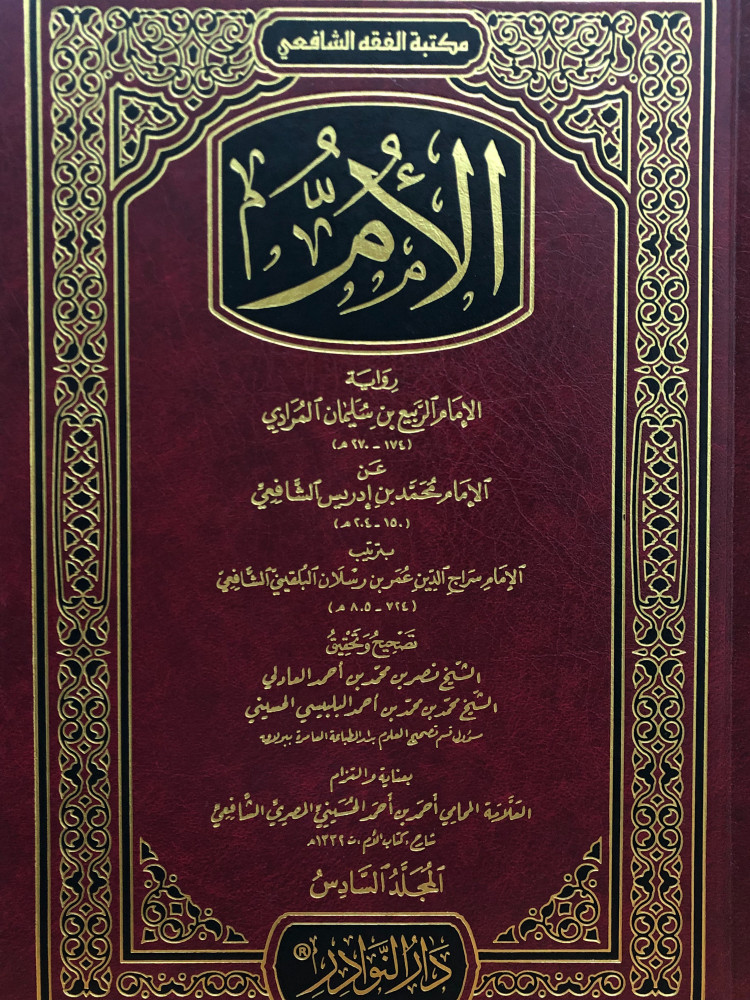 مكتبة الفقه الشافعي
الأُمُّ
رِوَايَة
الإِمَامِ الرَّبِيع بن سُلَيْمَان المُرَادِي
(١٧٤ - ٢٧٠ هـ)
عَن
الإِمَامِ مُحَمَّد بن إدريس الشَّافِعِيِّ
(١٥٠ - ٢٠٤ هـ)
بترتيب
الإِمَامِ سراج الدِّين عُمَر بن رسْلَان البُلقينيِّ الشَّافِعِيِّ
(٧٢٤ - ٨٠٥ هـ)
تَصْحِيحُ وَتَحْقِيقُ
الشّيخ نصر بن محمّد بن أحمد العادلي
الشّيخ محمّد بن محمّد بن أحمد البلبيسي الحسيني
مسؤول قسم تصحيح العلوم بدار الطباعة العامرة ببولاق
بعناية والتزام
العَلَّامة المحامي أحمَد بن أحمَد الحُسَينيِّ المصريِّ الشَّافِعِيِّ
شارح كتاب الأم، ت ١٣٣٢هـ
المُجَلَّدُ السَّادِسُ
دَارُ النَّوَادِرِ ®